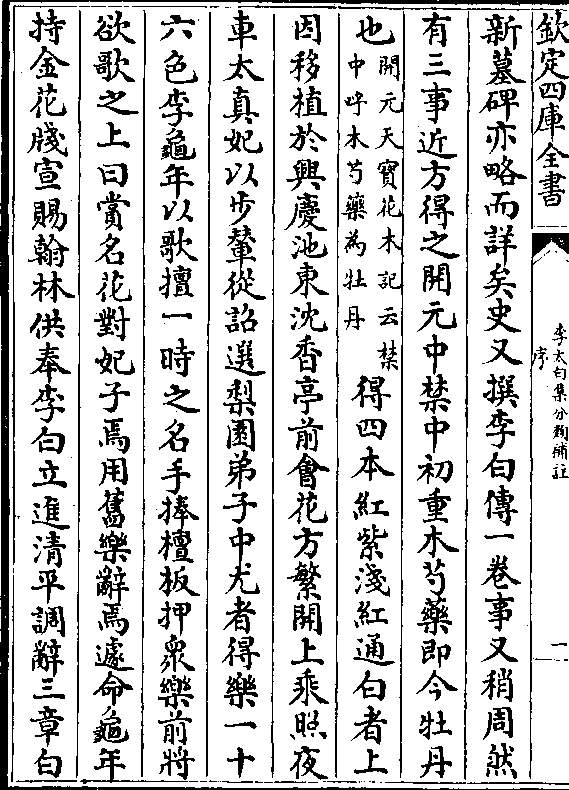 欽定四庫全書
李太白集分類補註
序
一
新墓碑亦略而詳矣史又撰李白傳一卷事又稍周然
有三事近方得之開元中禁中初重木芍藥即今牡丹
也
開元天寶花木記云禁
中呼木芍藥為牡丹
得四本紅紫淺紅通白者上
因移植於興慶池東沈香亭前會花方繁開上乘照夜
車太真妃以步輦從詔選梨園弟子中尤者得樂一十
六色李龜年以歌擅一時之名手捧檀板押衆樂前將
欲歌之上曰賞名花對妃子焉用舊樂辭焉遽命龜年
持金花牋宣賜翰林供奉李白立進清平調辭三章白